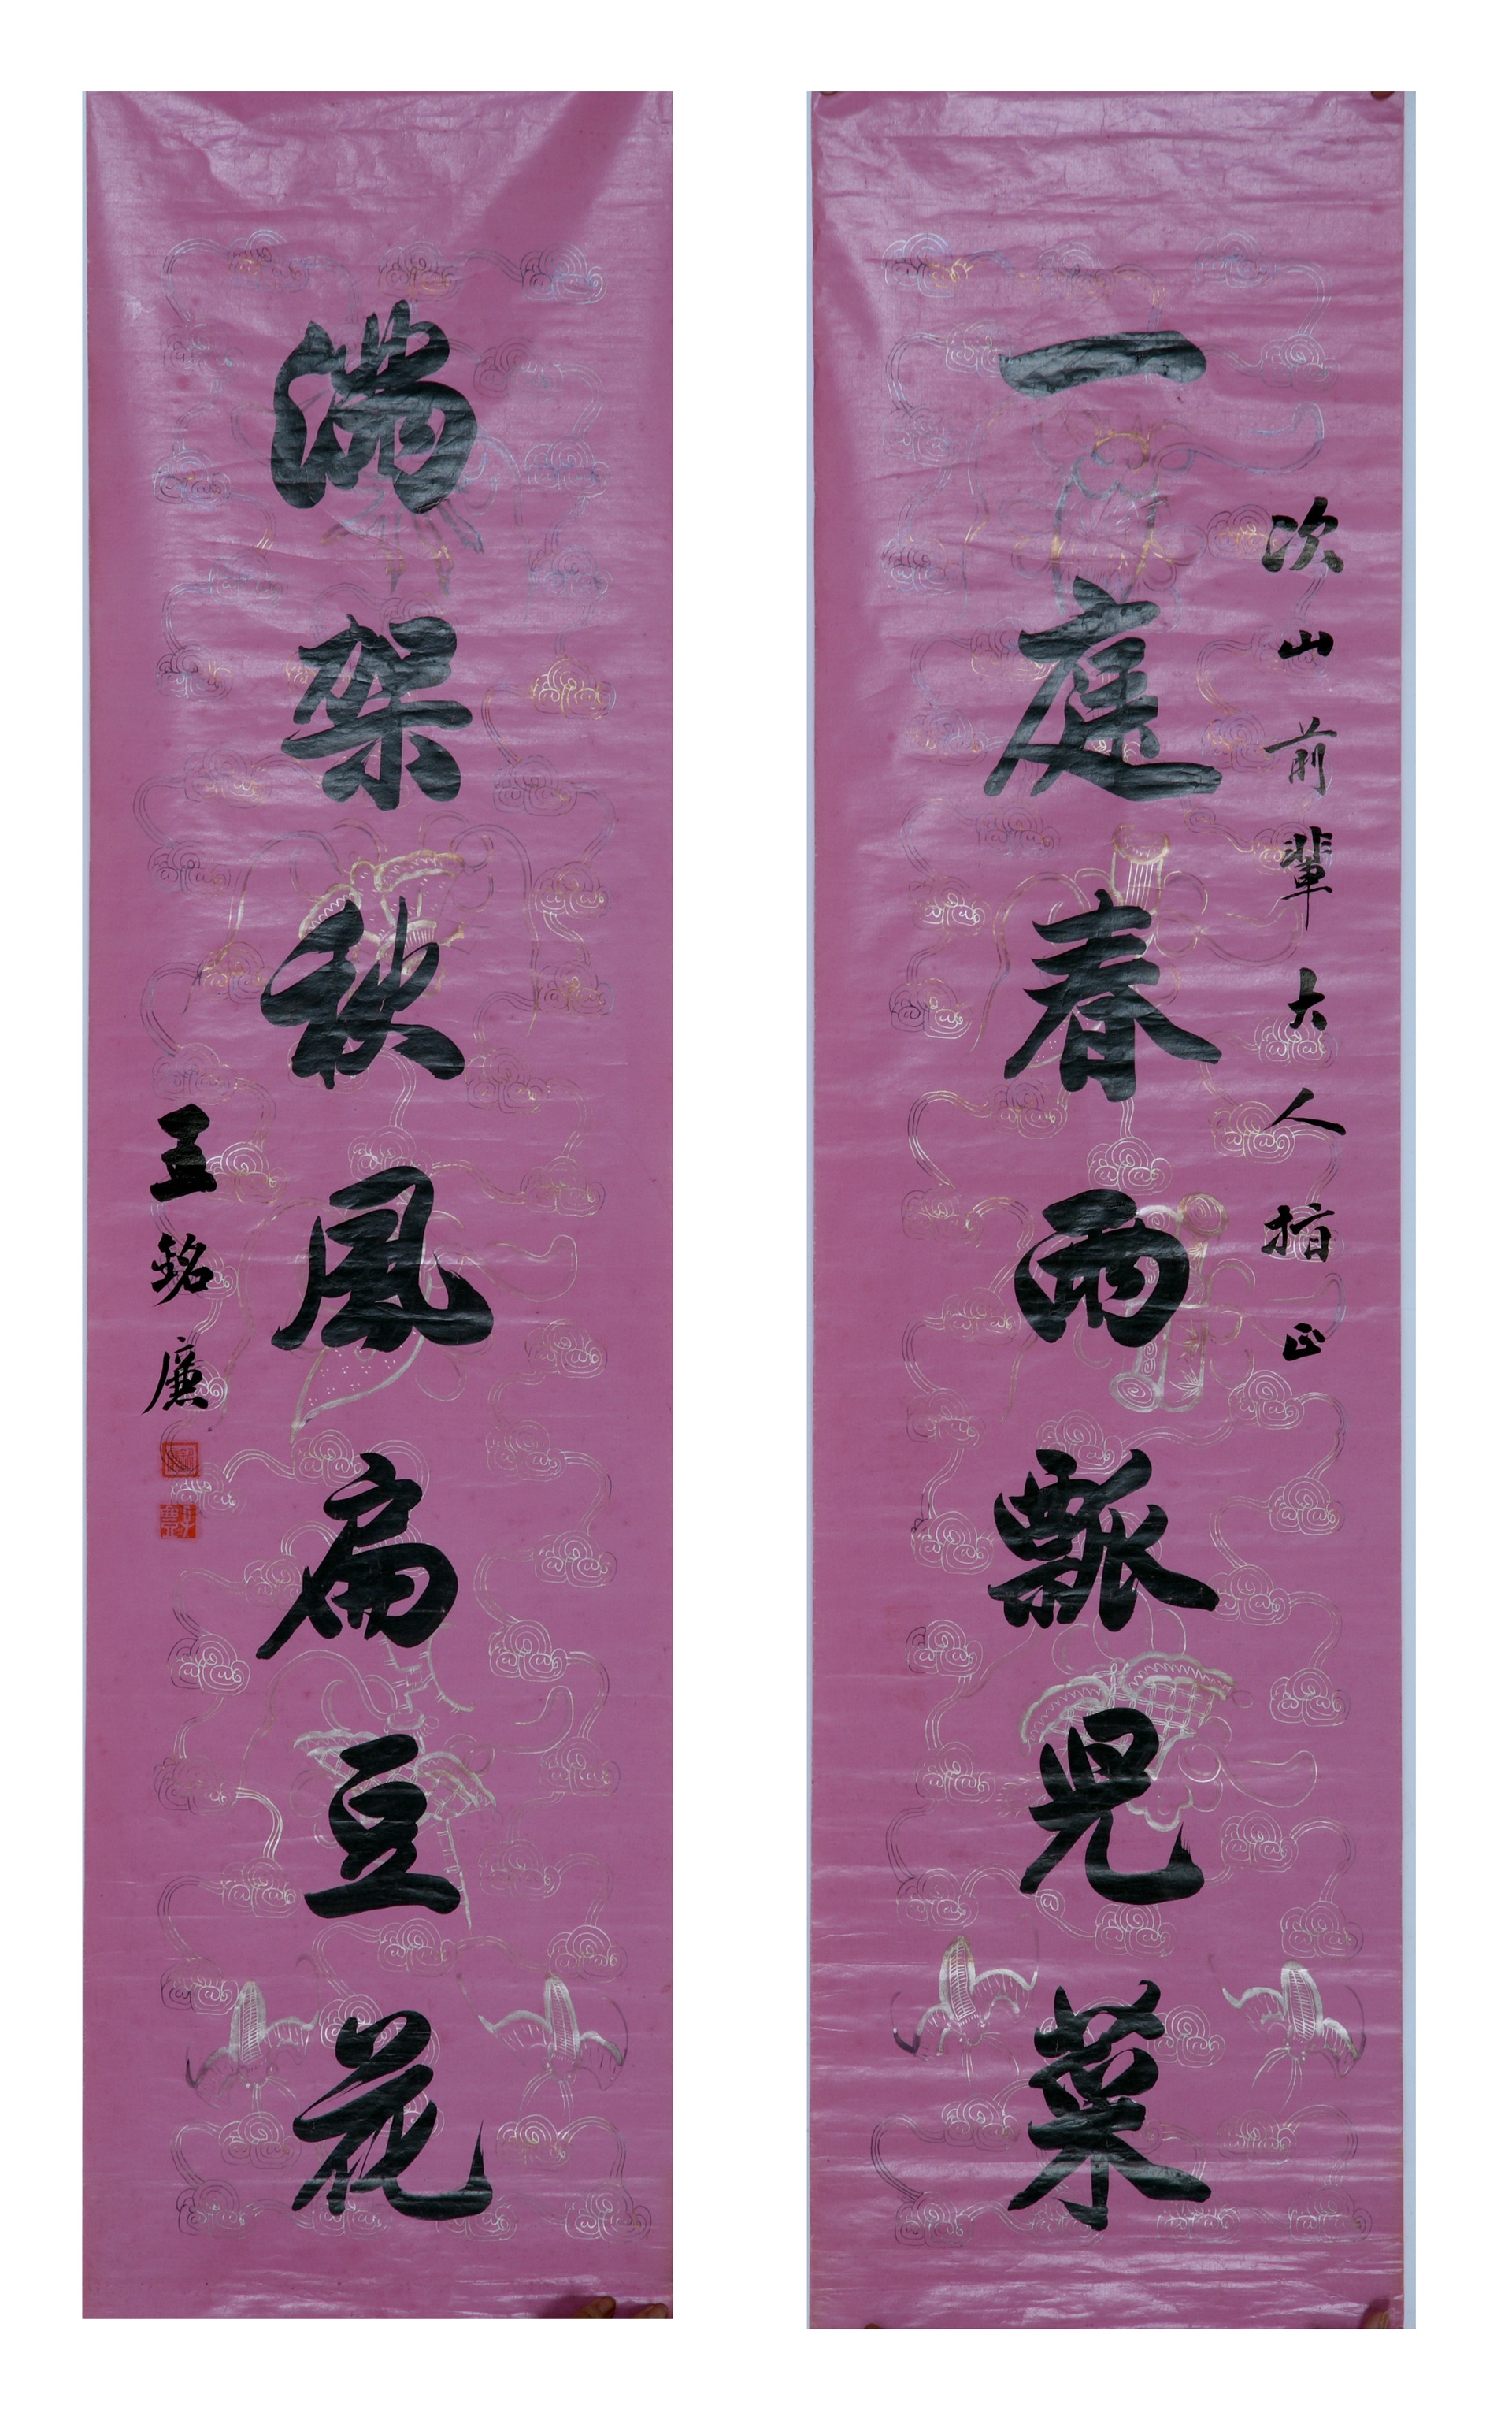 次山前輩大人指正
一庭春雨瓢兒菜
滿架秋風扁豆花
王銘廉